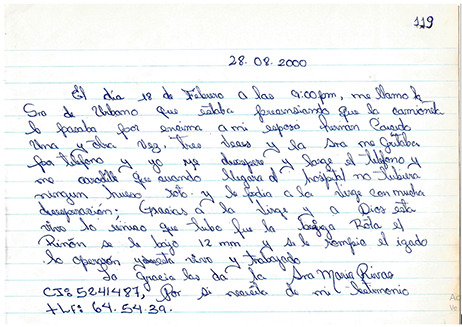 119
28.08.2000
El día 18 de Febrero a las 9:00pm, me llamo la
Sra de Urbano que estaba presensiando que la camioneta
le pasaba por encima a mi esposo Hernan
Una y otra vez. Tres veses y la Sra me Gritaba
por telefono y yo me desespere y large el telefono y
me que cuando llegara al hospital no tubiera
ningun hueso roto. y le pedia a la Virge con mucha
desesperacion; Gracias a la Virge y a Dios esta
vivo lo unico que tubo fue la bejiga Rota el
Riñon se le bajo 12 mm y se le rompio el igado
lo operaron y esta vivo y trabajado
La Gracia les da la Sra Maria Rivas
CI: 5241487, Por si nesesita de mi testimonio
tlf: 64.54.39.